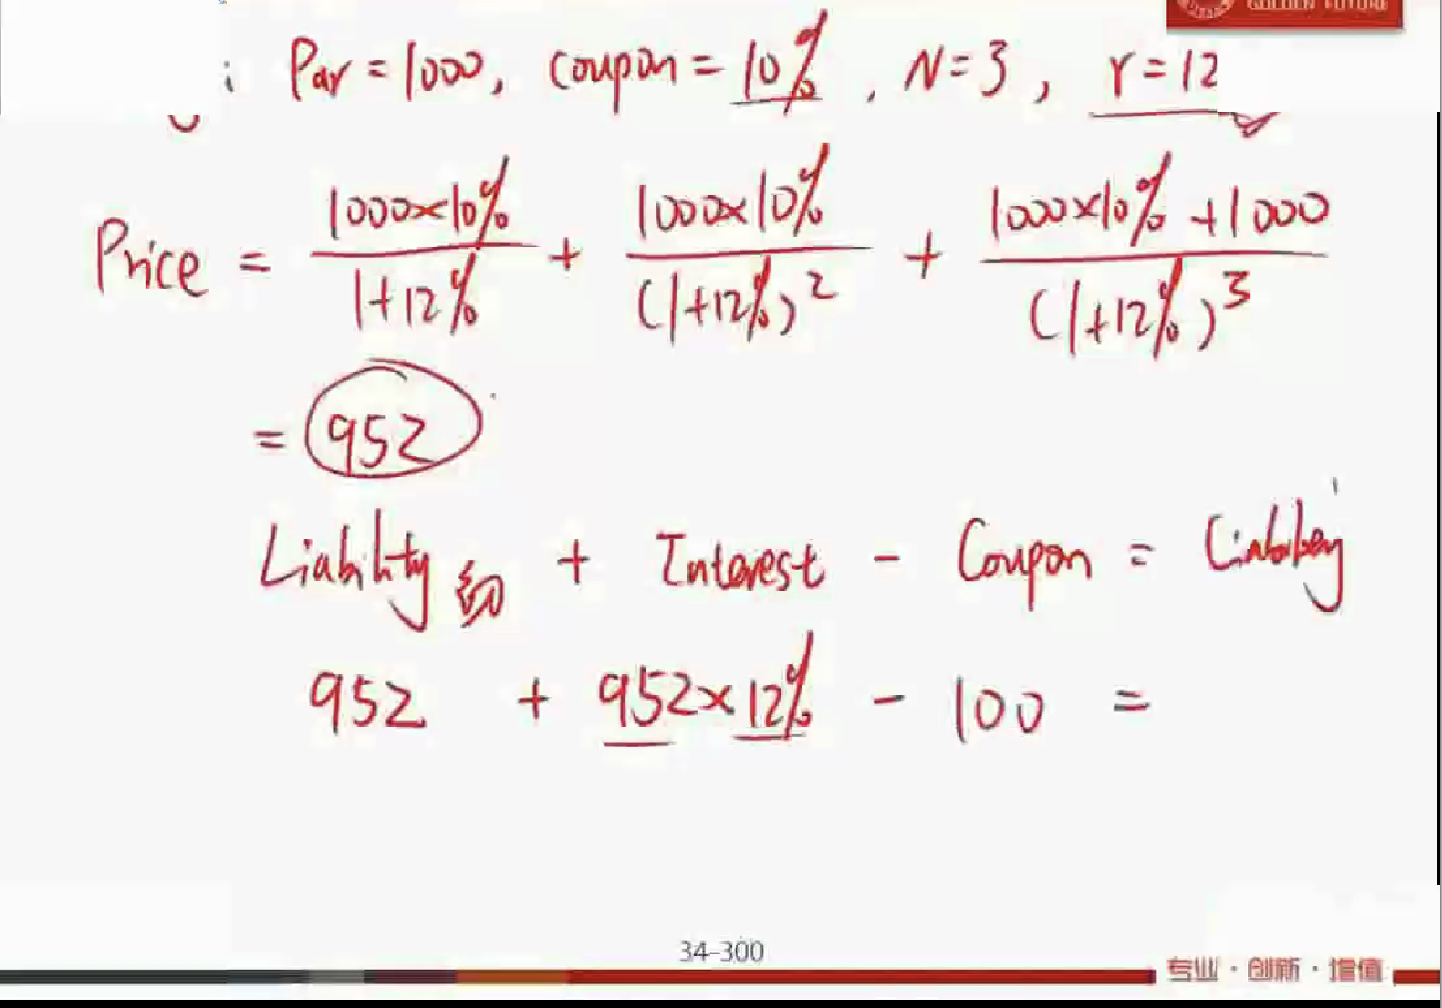 GOLDEN FUTURE
: Par = 1000, coupon = 10%, N = 3, r = 12
Price = 1000×10% / 1+12% + 1000×10% / (1+12%)² + 1000×10% + 1000 / (1+12%)³
= 952
Liability初 + Interest - Coupon =
952 + 952×12% - 100 =
34-300
专业·创新·增值